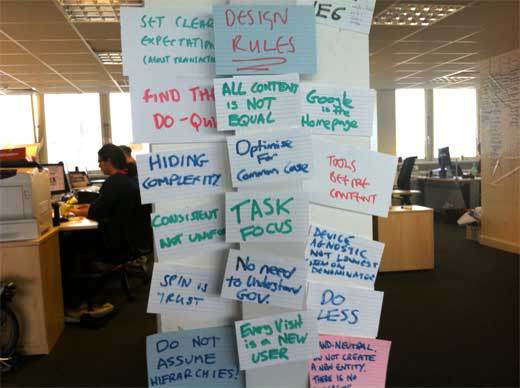 SET CLEAR
EXPECTATIONS
(ABOUT TRANSACTIONS
DESIGN
RULES
FIND THE
DO-QU
ALL CONTENT
IS NOT
EQUAL
Google
is the
Homepage
HIDING
COMPLEXITY
Optimise
For
Common Case
TOOLS
BEFORE
CONTENT
CONSISTENT
NOT UNIFO
TASK
FOCUS
DEVICE
AGNOSTIC
NOT LOWEST
DENOMINATOR
SPIN IS
TRUST
No need
to Understand
GOV.
DO
LESS
DO NOT
ASSUME
HIERARCHIES!
Every Visit
is a NEW
USER
-NEUTRAL.
DO NOT CREATE
A NEW ENTITY.
THERE IS NO